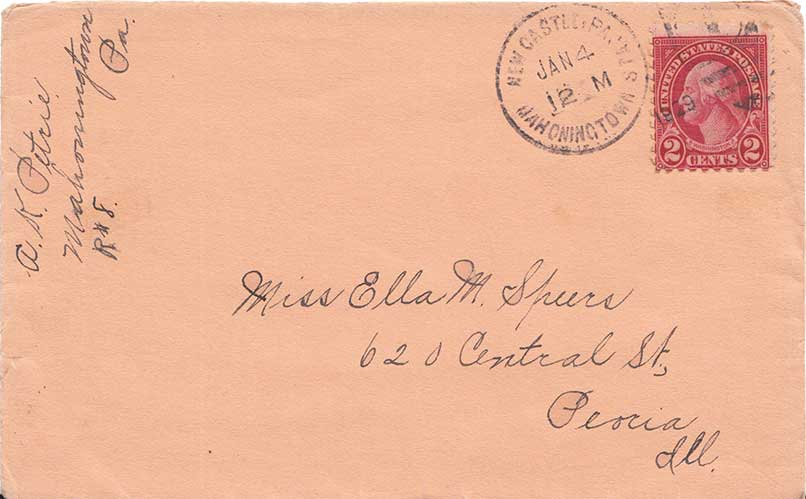 A. K. Petrie
Mahoningtown
Pa.
R#8.
NEW CASTLE, PA.
MAHONINGTOWN STA.
JAN 4
12 M
1929
UNITED STATES POSTAGE
WASHINGTON
2 CENTS 2
Miss Ella M. Speers
620 Central St,
Peoria
Ill.